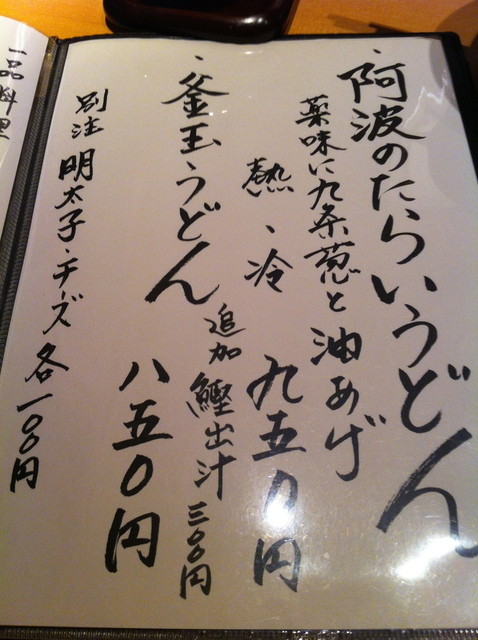 ・阿波のたらいうどん
薬味に九条葱と油あげ
熱・冷 九五〇円
・釜玉うどん 八五〇円
追加 鰹出汁 三〇〇円
別注 明太子・チーズ 各一〇〇円
一品料理